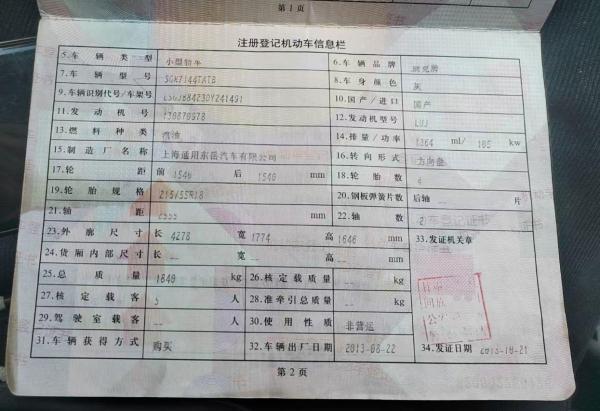 第1页
注册登记机动车信息栏
5.车辆类型 小型轿车 6.车辆品牌
7.车辆型号 SGM7144TATB 8.车身颜色 灰
9.车辆识别代号/车架号 10.国产/进口 国产
11.发动机号 130870978 12.发动机型号 LUJ
13.燃料种类 汽油 14.排量/功率 1364 ml/ kw
15.制造厂名称 上海通用东岳汽车有限公司 16.转向形式 方向盘
17.轮距 前 1540 后 1540 mm 18.轮胎数 4
19.轮胎规格 215/55R18 20.钢板弹簧片数 后轴 -- 片
21.轴距 2555 mm 22.轴数 2
23.外廓尺寸 长 4278 宽 1774 高 1646 mm 33.发证机关章
24.货厢内部尺寸 长 -- 宽 -- 高 -- mm
25.总质量 1840 kg 26.核定载质量 -- kg
27.核定载客 5 人 28.准牵引总质量 -- kg
29.驾驶室载客 -- 人 30.使用性质 非营运
31.车辆获得方式 购买 32.车辆出厂日期 2013-08-22 34.发证日期 2013-10-21
第2页